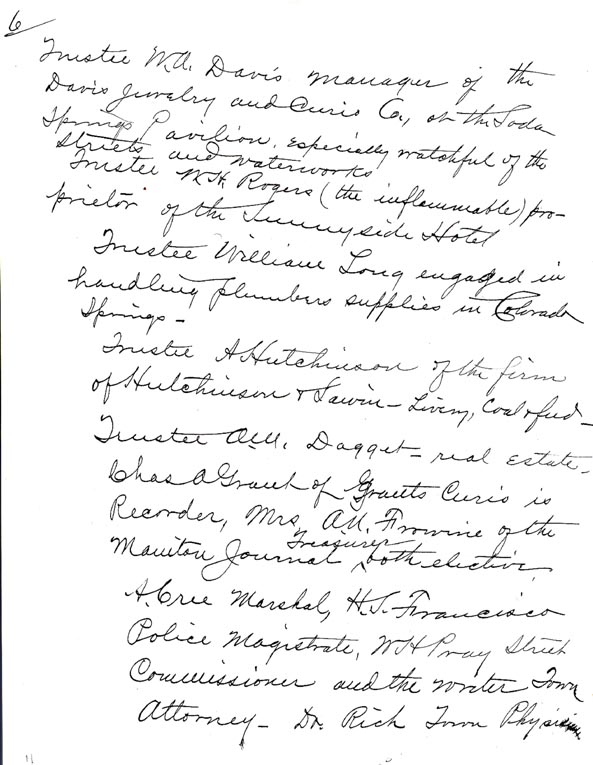 6
Trustee W.A. Davis manager of the
Davis Jewelry and Curio Co., at the Soda
Springs Pavilion, especially watchful of the
streets and waterworks
Trustee W.H. Rogers (the inflammable) pro-
prietor of the Sunnyside Hotel
Trustee William Long engaged in
handling plumbers supplies in Colorado
Springs -
Trustee A Hutchinson of the firm
of Hutchinson & Sawin - Livery, Coal & feed -
Trustee A.M. Dagget - real estate -
Chas A Grant of Grants Curio is
Recorder, Mrs. A.M. Frowine of the
Manitou Journal Treasurer, both elective
A. Cree Marshal, H.S. Francisco
Police Magistrate, W H Pray Street
Commissioner and the writer Town
Attorney - Dr. Rich Town Physician